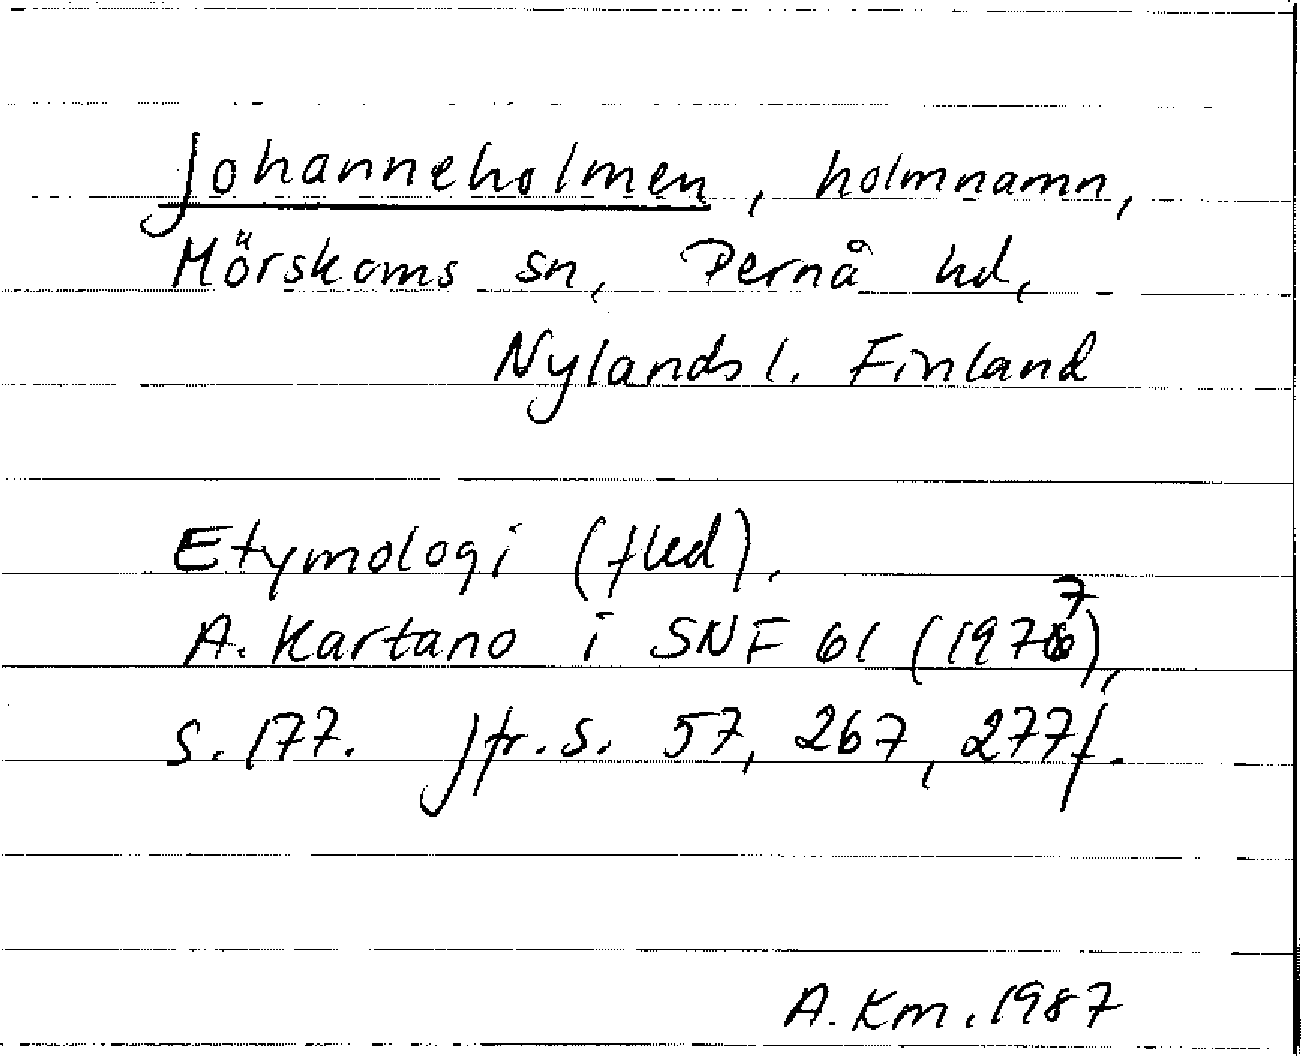 Johanneholmen, holmnamn,
Mörskoms sn, Pernå hd,
Nylands l. Finland
Etymologi (fled).
A. Kartano i SNF 61 (1977),
s. 177. Jfr. s. 57, 267, 277f.
A. Km. 1987